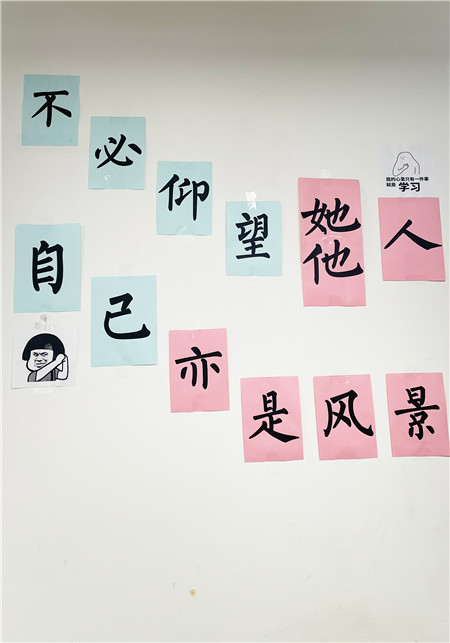 不必仰望她他人
自己亦是风景
我的心里只有一件事
就是 学习